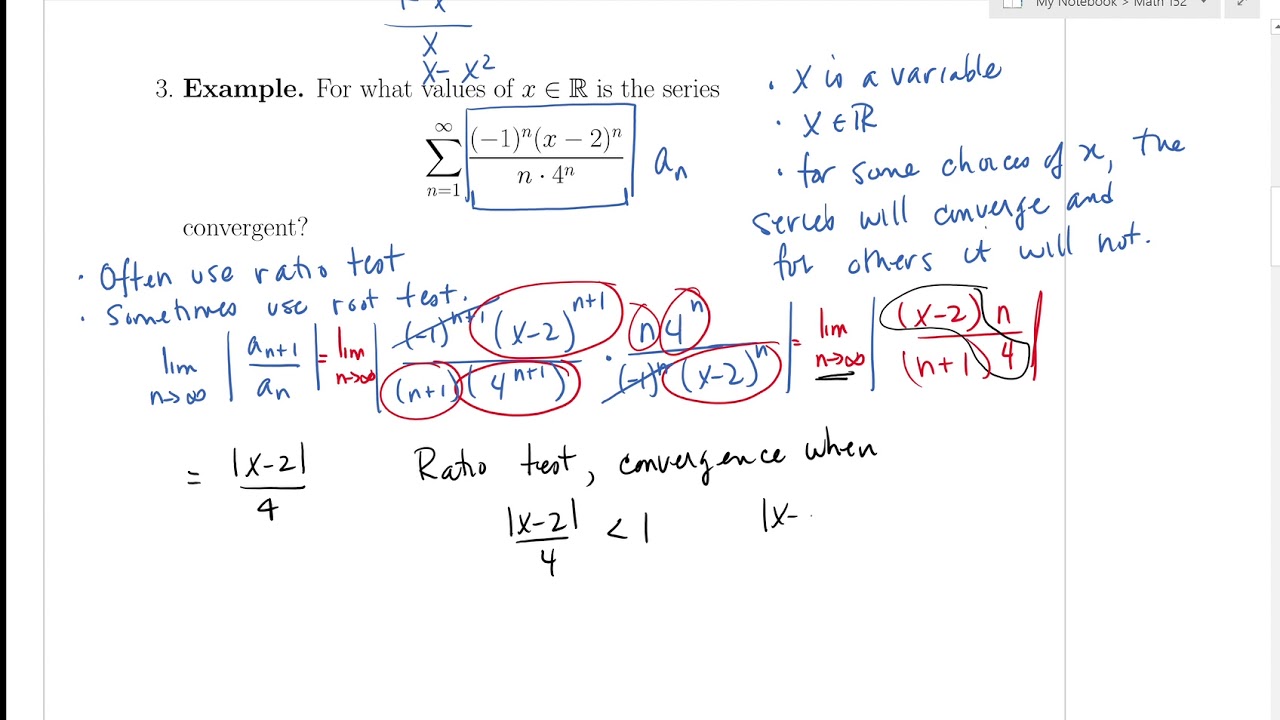 My Notebook > Math 152
1 - x
x
x - x²
3. Example. For what values of x ∈ ℝ is the series
∑_{n=1}^{∞} (−1)ⁿ(x − 2)ⁿ / (n · 4ⁿ) aₙ
convergent?
· x is a variable
· x ∈ ℝ
· for some choices of x, the
series will converge and
for others it will not.
· Often use ratio test
· Sometimes use root test.
lim_{n→∞} | a_{n+1} / aₙ | = lim_{n→∞} | (-1)^{n+1} (x-2)^{n+1} / (n+1)(4^{n+1}) · n 4ⁿ / (-1)ⁿ (x-2)ⁿ | = lim_{n→∞} | (x-2) n / (n+1) 4 |
= |x-2| / 4 Ratio test, convergence when
|x-2| / 4 < 1 |x-